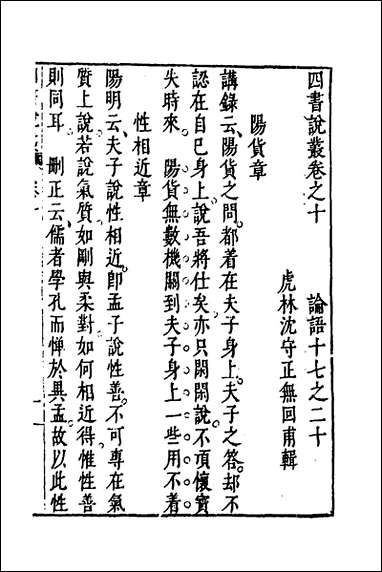 四書說叢卷之十　論語十七之二十
虎林沈守正無回甫輯
陽貨章
講錄云陽貨之問都着在夫子身上夫子之答却不
認在自己身上說吾將仕矣亦只閑閑說不項懷寶
失時來　陽貨無數機關到夫子身上一些用不着
性相近章
陽明云夫子說性相近卽孟子說性善不可專在氣
質上說若說氣質如剛與柔對如何相近得惟性善
則同耳　刪正云儒者學孔而憚於異孟故以此性